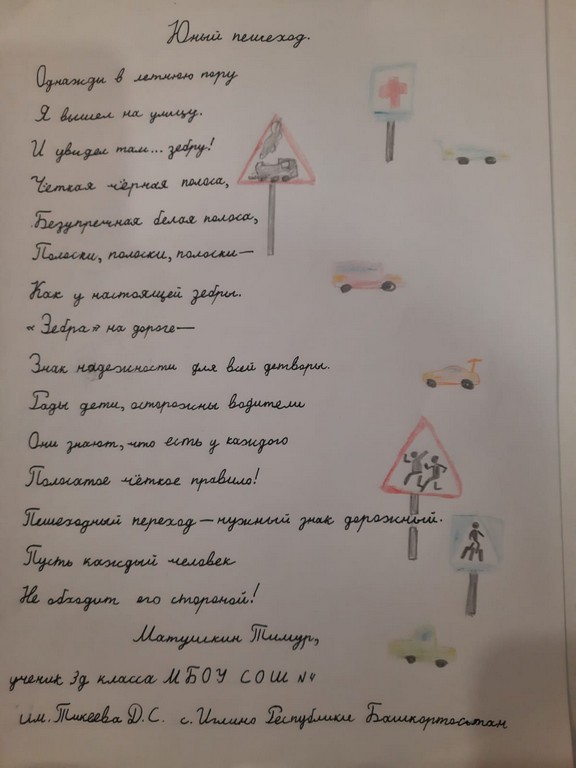 Юный пешеход.
Однажды в летнюю пору
Я вышел на улицу.
И увидел там... зебру!
Чёткая чёрная полоса,
Безупречная белая полоса,
Полоски, полоски, полоски—
Как у настоящей зебры.
«Зебра» на дороге—
Знак надежности для всей детворы.
Рады дети, осторожны водители
Они знают, что есть у каждого
Полосатое чёткое правило!
Пешеходный переход — нужный знак дорожный.
Пусть каждый человек
Не обходит его стороной!
Матушкин Тимур,
ученик 3д класса МБОУ СОШ №4
им. Тикеева Д.С. с. Иглино Республики Башкортостан